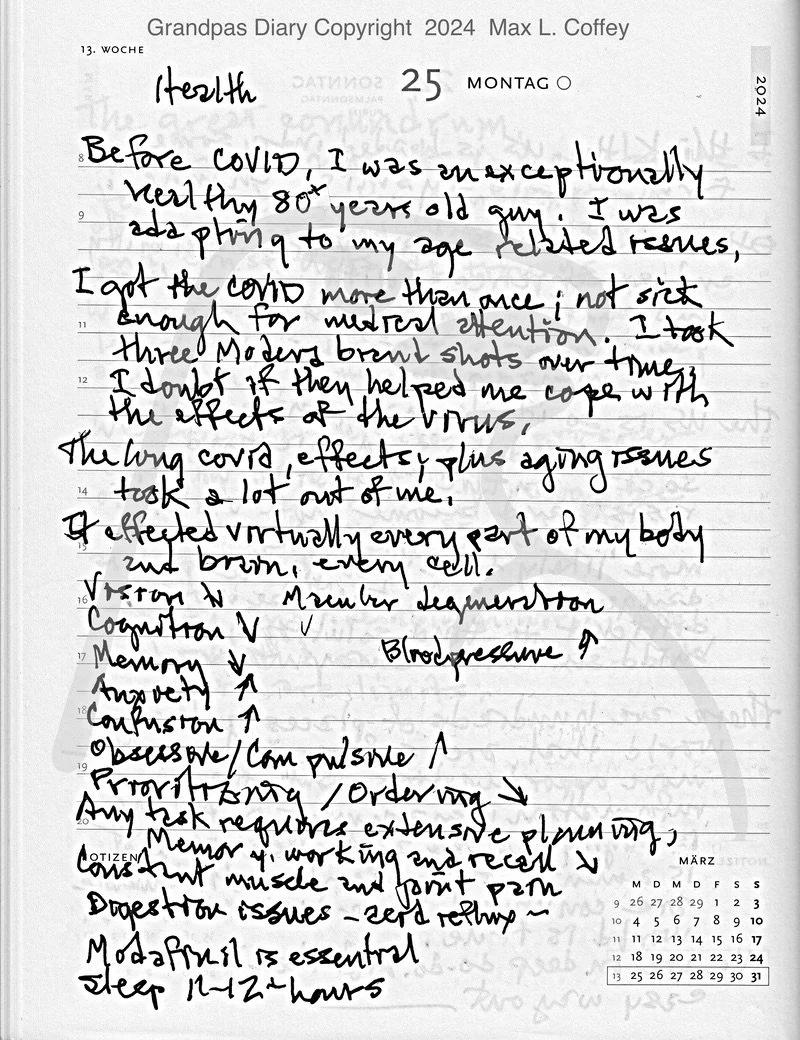 Grandpas Diary Copyright 2024 Max L. Coffey
13. WOCHE
Health 25 MONTAG
2024
8 Before COVID, I was an exceptionally
healthy 80+ years old guy. I was
9 adapting to my age related issues,
I got the COVID more than once; not sick
11 enough for medical attention. I took
three Moderd brand shots over time,
12 I doubt if they helped me cope with
the effects of the virus.
The long covid, effects; plus aging issues
14 took a lot out of me.
It affected virtually every part of my body
15 and brain, every cell.
16 Vision ↓ Macular degeneration
Cognition ↓ ✓
17 Memory ↓ Bloodpressure ↑
Anxiety ↑
18 Confusion ↑
Obsessive/Compulsive ↑
19 Prioritizing/Ordering ↘
20 Any task requires extensive planning,
Memory, working and recall ↘
NOTIZEN Constant muscle and joint pain
Digestion issues – acid reflux ~
Modafinil is essential
Sleep 11-12 hours
MÄRZ
M D M D F S S
9 26 27 28 29 1 2 3
10 4 5 6 7 8 9 10
11 11 12 13 14 15 16 17
12 18 19 20 21 22 23 24
13 25 26 27 28 29 30 31